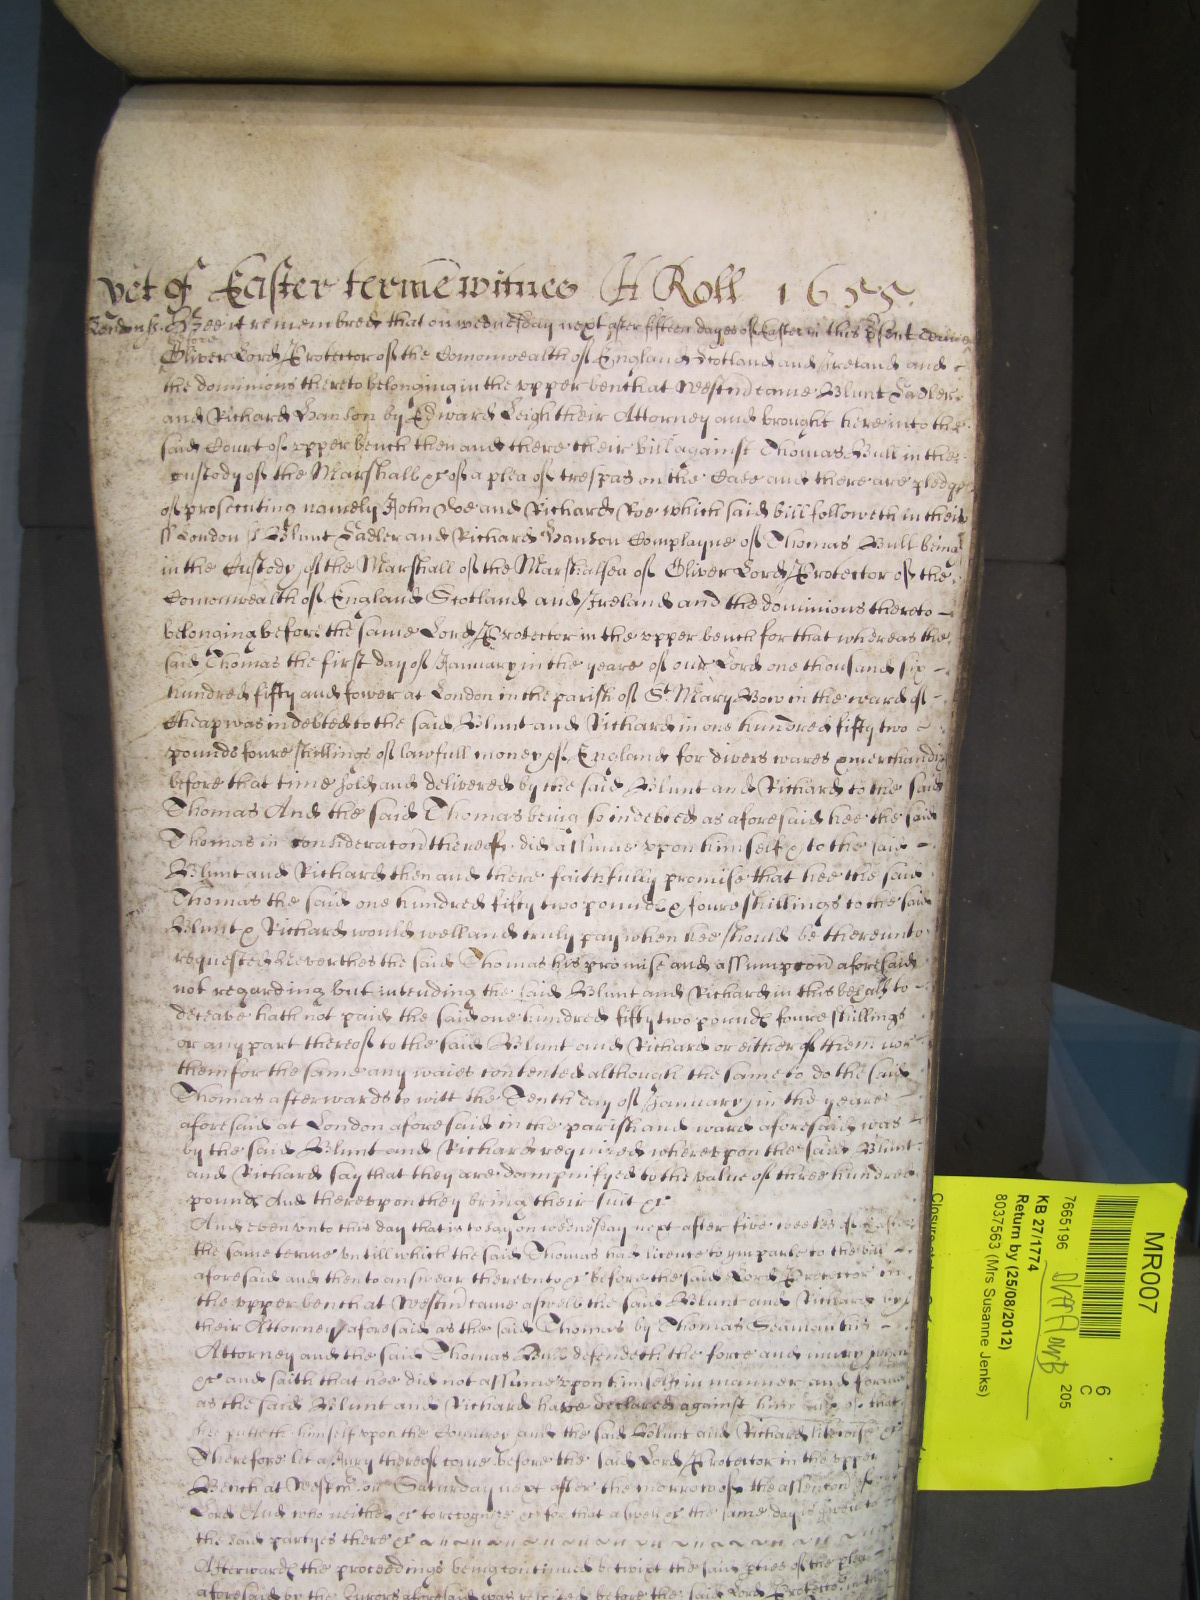 yet of Easter terme witnes H Roll 1655.
London ss. Bee it remembred that on wednesday next after fifteen dayes of Easter in this psent Terme
before
Oliver Lord Protector of the Comonwealth of England Scotland and Ireland and
the dominions thereto belonging in the upper bench at Westm came Blunt Sadler
and Richard Hanson by Edward Leigh their Attorney and brought here into the
said Court of upper bench then and there their bill against Thomas Bull in the
custody of the Marshall &c of a plea of trespas on the Case and there are pledges
of prosecuting namely John Doe and Richard Roe which said bill followeth in theis
ss London ss Blunt Sadler and Richard Hanson Complayne of Thomas Bull being
in the Custody of the Marshall of the Marshalsea of Oliver Lord Protector of the
Comonwealth of England Scotland and Ireland and the dominions thereto
belonging before the same Lord Protector in the upper bench for that whereas the
said Thomas the first day of January in the yeare of our Lord one thousand six
hundred fifty and fower at London in the parish of St Mary Bow in the ward of
Cheap was indebted to the said Blunt and Richard in one hundred fifty two
pounds foure shillings of lawfull money of England for divers wares & merchandiz
before that time sold and delivered by the said Blunt and Richard to the said
Thomas And the said Thomas being so indebted as aforesaid hee the said
Thomas in consideracon thereof did assume upon himself & to the said
Blunt and Richard then and there faithfully promise that hee the said
Thomas the said one hundred fifty two pounds & foure shillings to the said
Blunt & Richard would well and truly pay when hee should be thereunto
requested Neverthes the said Thomas his promise and assumpcon aforesaid
not regarding but intending the said Blunt and Richard in this behalf to
deceave hath not paid the said one hundred fifty two pounds foure shillings
or any part thereof to the said Blunt and Richard or either of them nor
them for the same any waies contented although the same to do the said
Thomas afterwards to witt the Tenth day of January in the yeare
aforesaid at London aforesaid in the parish and ward aforesaid was
by the said Blunt and Richard required whereupon the said Blunt
and Richard say that they are dampnifyed to the value of three hundred
pounds And thereupon they bring their suit &c
And even unto this day that is to say on wednesday next after five weekes of Easter
the same terme untill which the said Thomas had licence to imparle to the bill
aforesaid and then to answear thereunto &c before the said Lord Protector in
the upper bench at Westm came aswell the said Blunt and Richard by
their Attorney aforesaid as the said Thomas by Thomas
Attorney and the said Thomas Bull defendeth the force and iniury when
&c and saith that hee did not assume upon himself in manner and forme
as the said Blunt and Richard have declared against him and of that
hee putteth himself upon the Countrey and the said Blunt and Richard likewise &c
Therefore let a Jury thereof come before the said Lord Protector in the upper
Bench at Westm on Saturday next after the morrow of the assention of
Lord And who neither &c to recognize &c for that aswell &c the same day is given to
the said partyes there &c
Afterwards the proceedings being continued betwixt the said pties of the plea
aforesaid by the Jurors aforesaid was respited before the said Lord Protector in the
MR007
6
C
7665196
205
KB 27/1774
Return by (25/08/2012)
8037563 (Mrs Susanne Jenks)